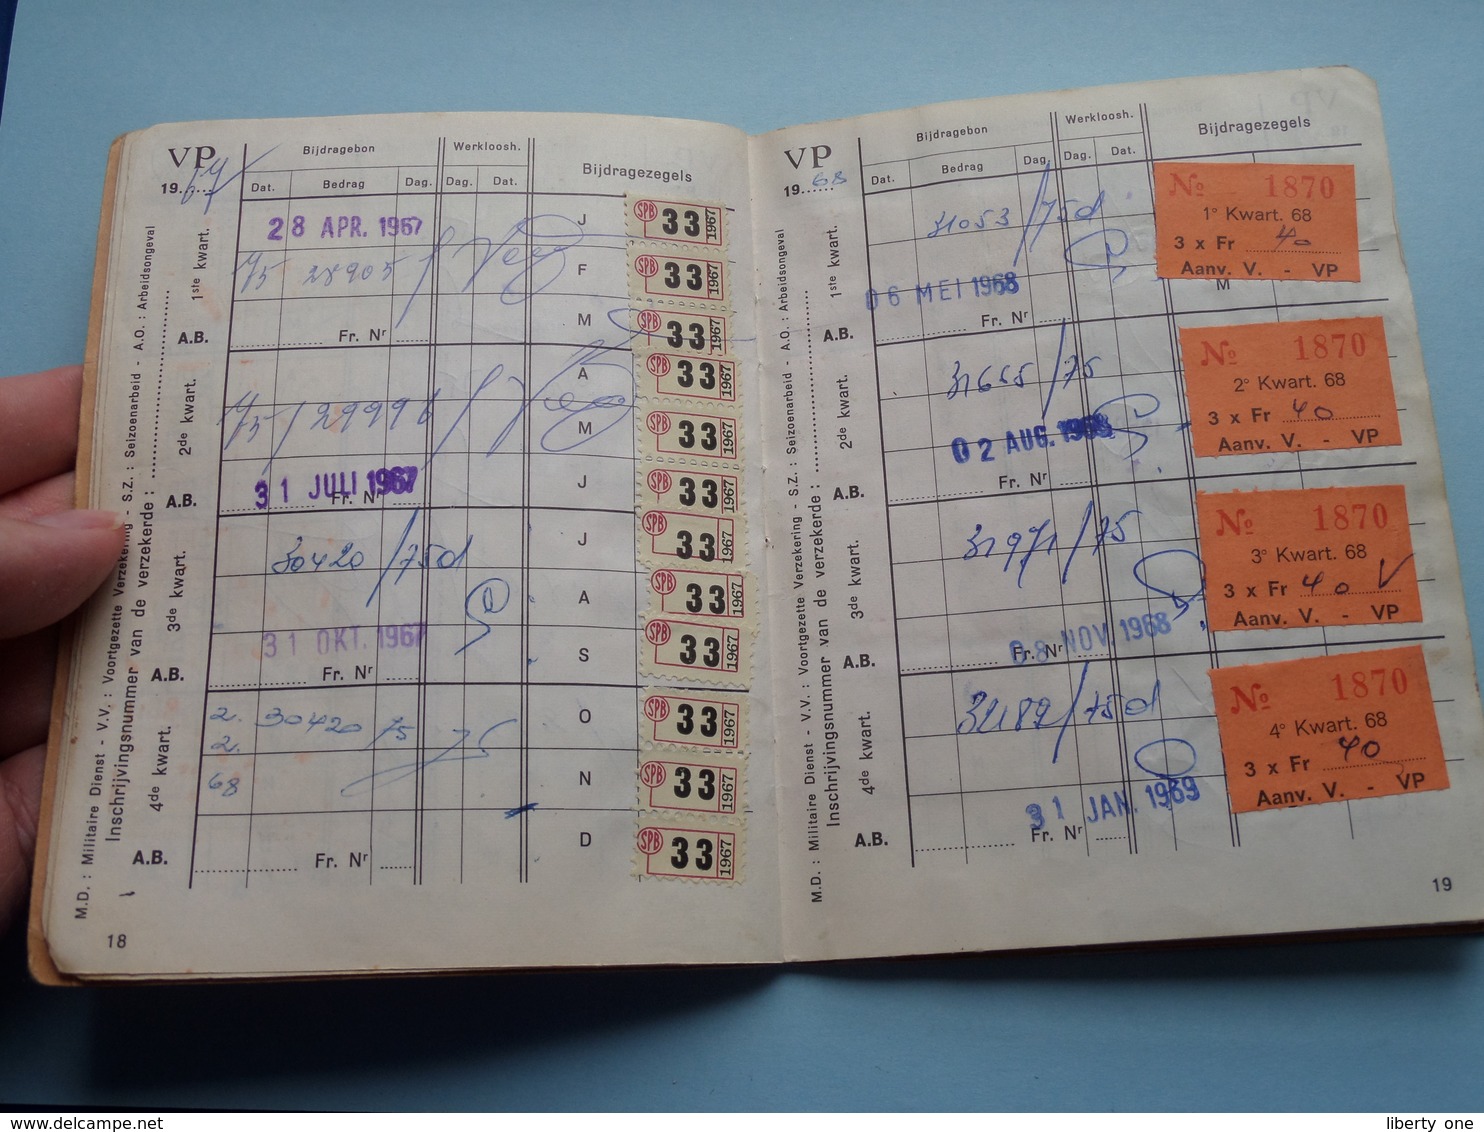 VP
1967
Bijdragebon
Werkloosh.
Bijdragezegels
Dat. Bedrag Dag. Dag. Dat.
M.D. : Militaire Dienst - V.V. : Voortgezette Verzekering - S.Z. : Seizoenarbeid - A.O. : Arbeidsongeval
Inschrijvingsnummer van de verzekerde :
1ste kwart.
28 APR. 1967
A.B.
Fr. Nr
J
F
M
2de kwart.
31 JULI 1967
A.B.
Fr. Nr
A
M
J
3de kwart.
30420/75d
31 OKT. 1967
A.B.
Fr. Nr
J
A
S
4de kwart.
2. 30420 75
2.
68
A.B.
Fr. Nr
O
N
D
SPB 33 1967
SPB 33 1967
SPB 33 1967
SPB 33 1967
SPB 33 1967
SPB 33 1967
SPB 33 1967
SPB 33 1967
SPB 33 1967
SPB 33 1967
SPB 33 1967
SPB 33 1967
18
VP
1968
Bijdragebon
Werkloosh.
Bijdragezegels
Dat. Bedrag Dag. Dag. Dat.
M.D. : Militaire Dienst - V.V. : Voortgezette Verzekering - S.Z. : Seizoenarbeid - A.O. : Arbeidsongeval
Inschrijvingsnummer van de verzekerde :
1ste kwart.
31053/75d
06 MEI 1968
A.B.
Fr. Nr
M
No 1870
1° Kwart. 68
3 x Fr 40
Aanv. V. - VP
2de kwart.
31655/75
02 AUG. 1968
A.B.
Fr. Nr
No 1870
2° Kwart. 68
3 x Fr 40
Aanv. V. - VP
3de kwart.
31971/75
08 NOV 1968
A.B.
Fr. Nr
No 1870
3° Kwart. 68
3 x Fr 40
Aanv. V. - VP
4de kwart.
31 JAN. 1969
A.B.
Fr. Nr
No 1870
4° Kwart. 68
3 x Fr 40
Aanv. V. - VP
19
liberty one